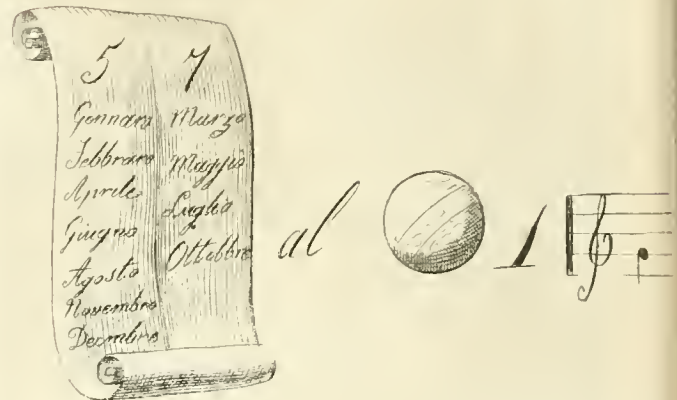 5
Gennaro
Febbraro
Aprile
Giugno
Agosto
Novembre
Decembre
7
Marzo
Maggio
Luglio
Ottobbre
al 1